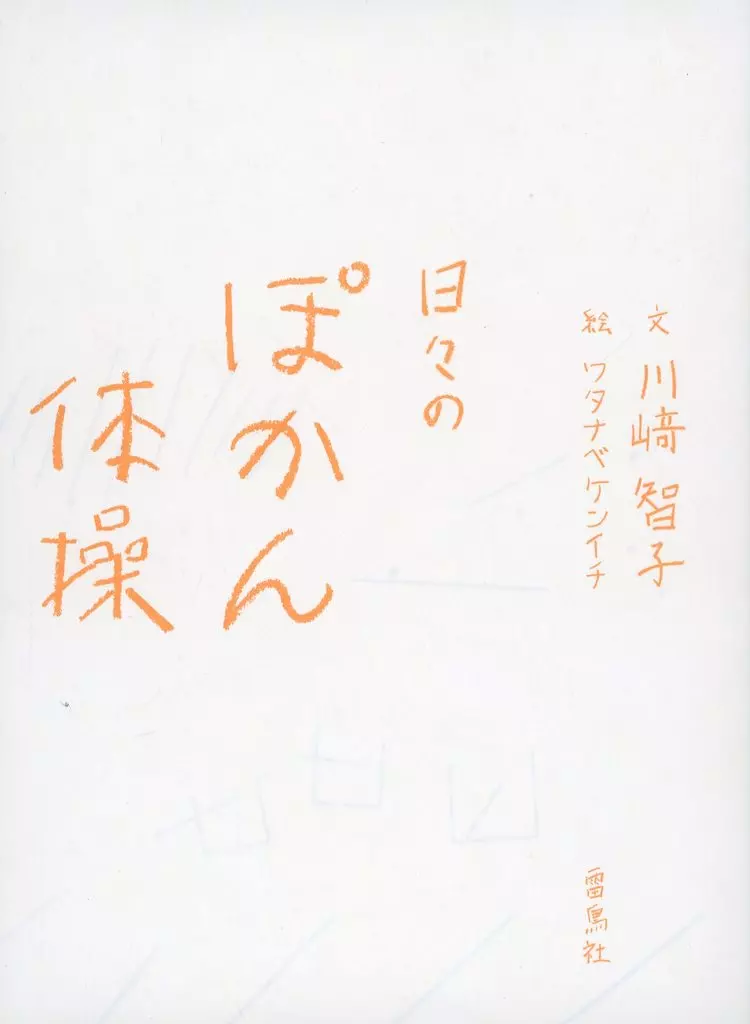 文 川﨑智子
絵 ワタナベケンイチ
日々の
ぽかん
体操
雷鳥社